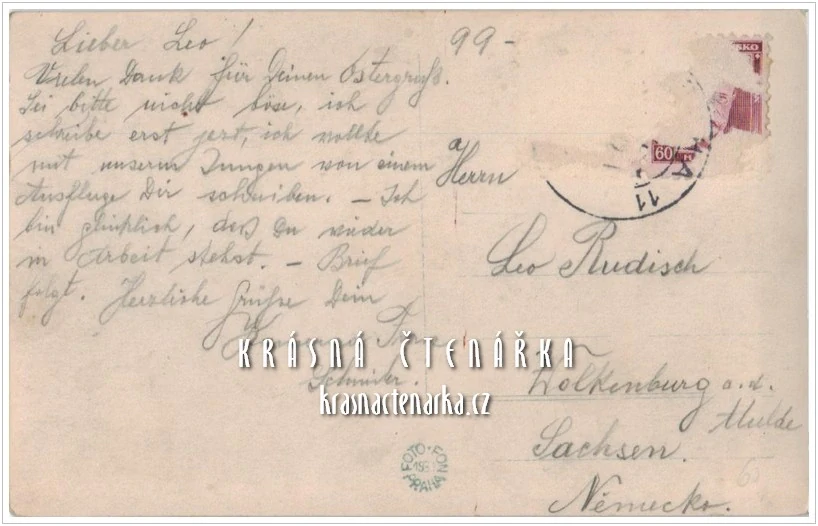 Lieber Leo!
99-
Vielen Dank für Deinen Ostergruß.
Sei bitte nicht böse, ich
schreibe erst jetzt, ich wollte
mit unserm Jungen von einem
Ausfluge Dir schreiben. – Ich
bin glücklich, daß Du wieder
in Arbeit stehst. – Brief
folgt. Herzliche Grüße Dein
KRÁSNÁ ČTENÁŘKA
krasnactenarka.cz
SKO
60 H
11
Herrn
Leo Rudisch
Wolkenburg a.d.
Mulde
Sachsen.
Německo.
FOTO-FON
PRAHA